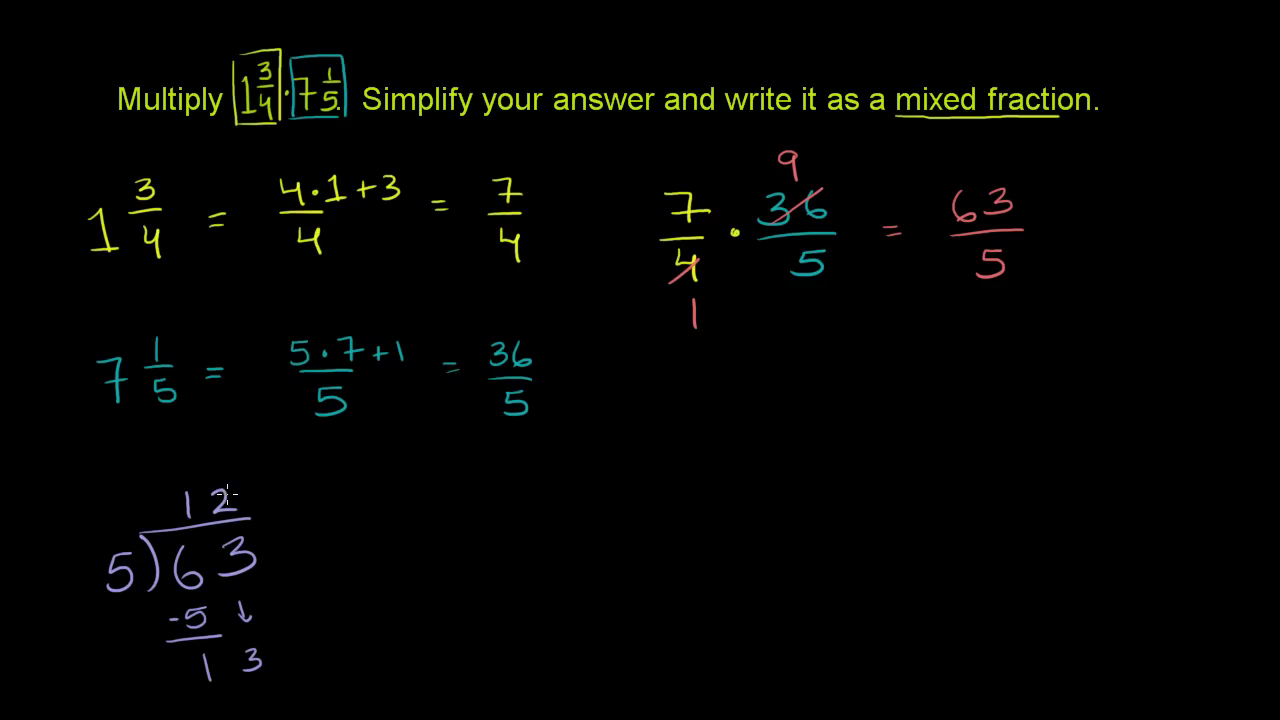 Multiply 1 3/4 · 7 1/5. Simplify your answer and write it as a mixed fraction.
1 3/4 = 4·1+3/4 = 7/4
7/4 · 36/5 = 63/5
9
1
7 1/5 = 5·7+1/5 = 36/5
12
5)63
-5↓
13